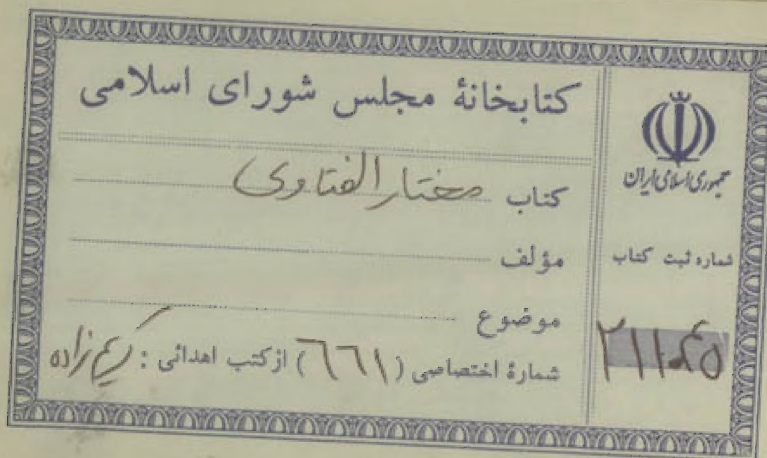 کتابخانهٔ مجلس شورای اسلامی
کتاب مختار الفتاوی
مؤلف
موضوع
شمارهٔ اختصاصی (٦٦١) از کتب اهدائی : کریم زاده
جمهوری اسلامی ایران
شماره ثبت کتاب